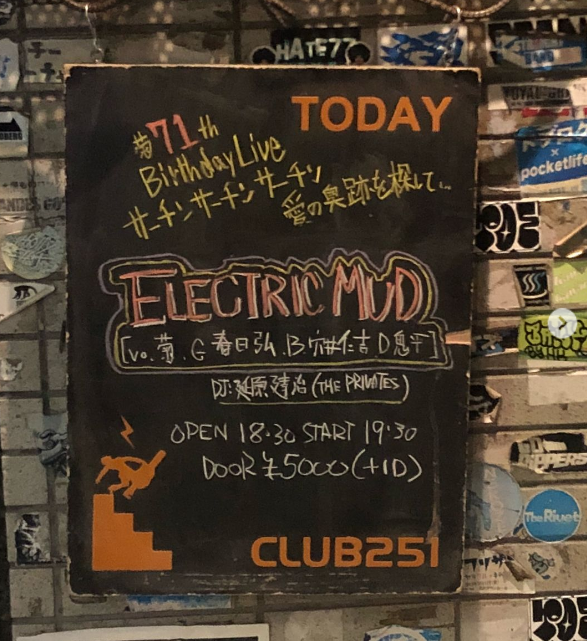 HATE77
TODAY
菊71th
Birthday Live
サーチンサーチンサーチン
愛の奥跡を探して...
ELECTRIC MUD
[Vo.菊.G春日弘.B穴井仁吉D息平]
DJ:延原達治(THE PRIVATES)
OPEN 18:30 START 19:30
DOOR ¥5000(+1D)
CLUB251
pocketlife
The Rivet